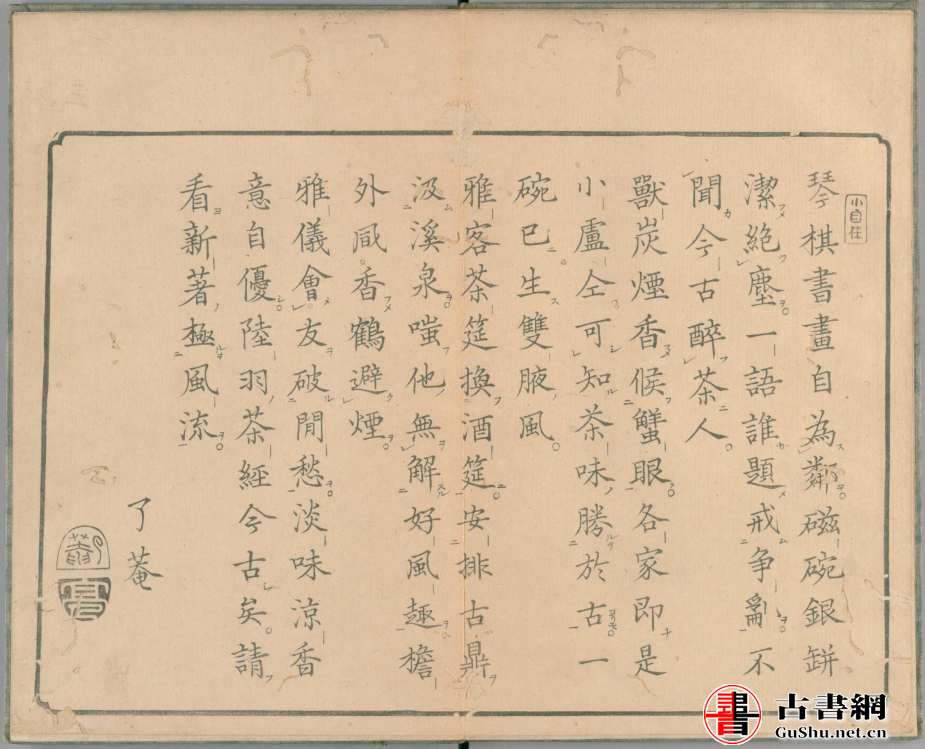 小自在
琴棋書畫自為鄰磁碗銀缾
潔絶塵一語誰題戒争⿵不
聞今古醉茶人
獸炭煙香候蟹眼各家即是
小盧仝可知茶味勝於古一
碗已生雙腋風
雅客茶筵換酒筵安排古鼎
汲溪泉嗤他無解好風趣檐
外凬香鶴避煙
雅儀會友破閒愁淡味涼香
意自優陸羽茶經今古矣請
看新著極風流
了菴
書 古書網
GuShu.net.cn